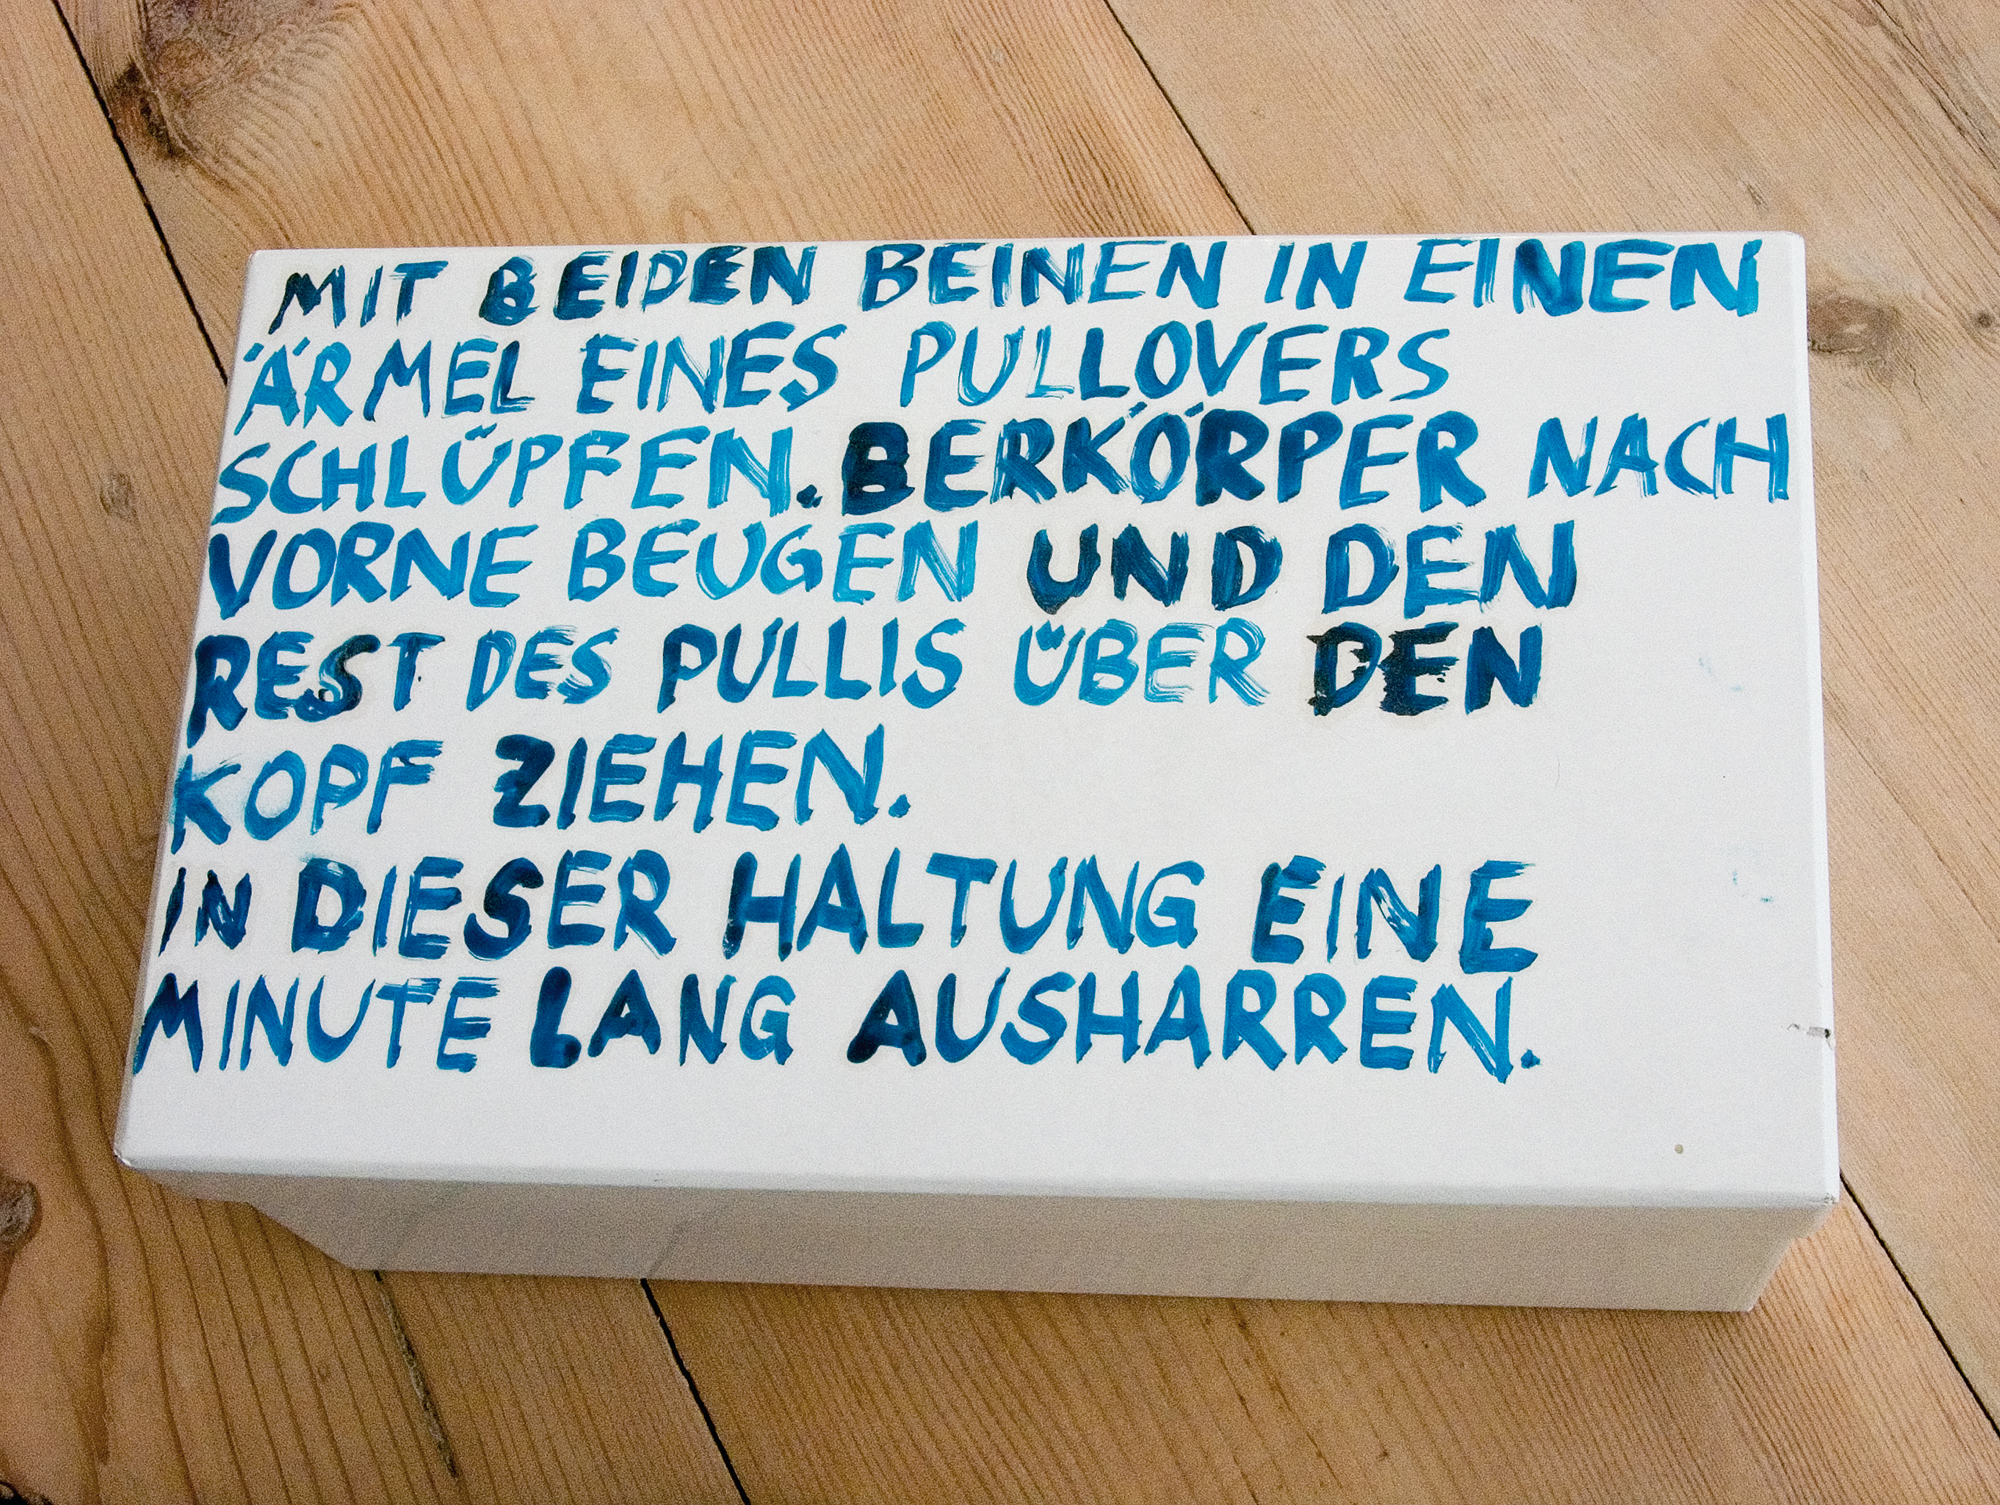 MIT BEIDEN BEINEN IN EINEN
ÄRMEL EINES PULLOVERS
SCHLÜPFEN. BERKÖRPER NACH
VORNE BEUGEN UND DEN
REST DES PULLIS ÜBER DEN
KOPF ZIEHEN.
IN DIESER HALTUNG EINE
MINUTE LANG AUSHARREN.